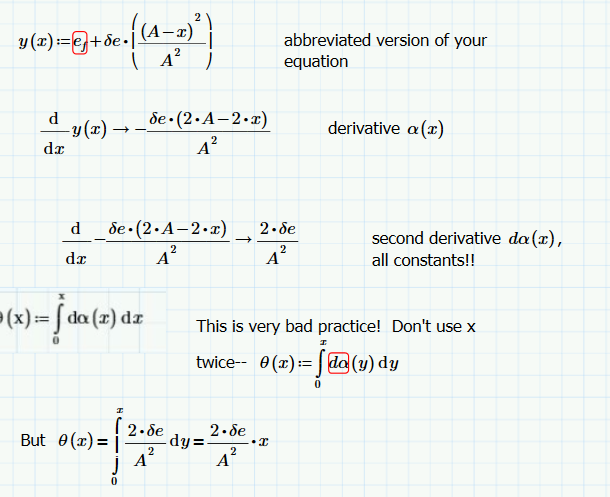 y(x):=e_f+δe·((A−x)²/A²)
abbreviated version of your
equation
d/dx y(x) → −δe·(2·A−2·x)/A²
derivative α(x)
d/dx −δe·(2·A−2·x)/A² → 2·δe/A²
second derivative dα(x),
all constants!!
(x):=∫₀ˣ dα(x) dx
This is very bad practice! Don't use x
twice-- θ(x):=∫₀ˣ dα(y) dy
But θ(x)=∫₀ˣ 2·δe/A² dy=2·δe/A²·x